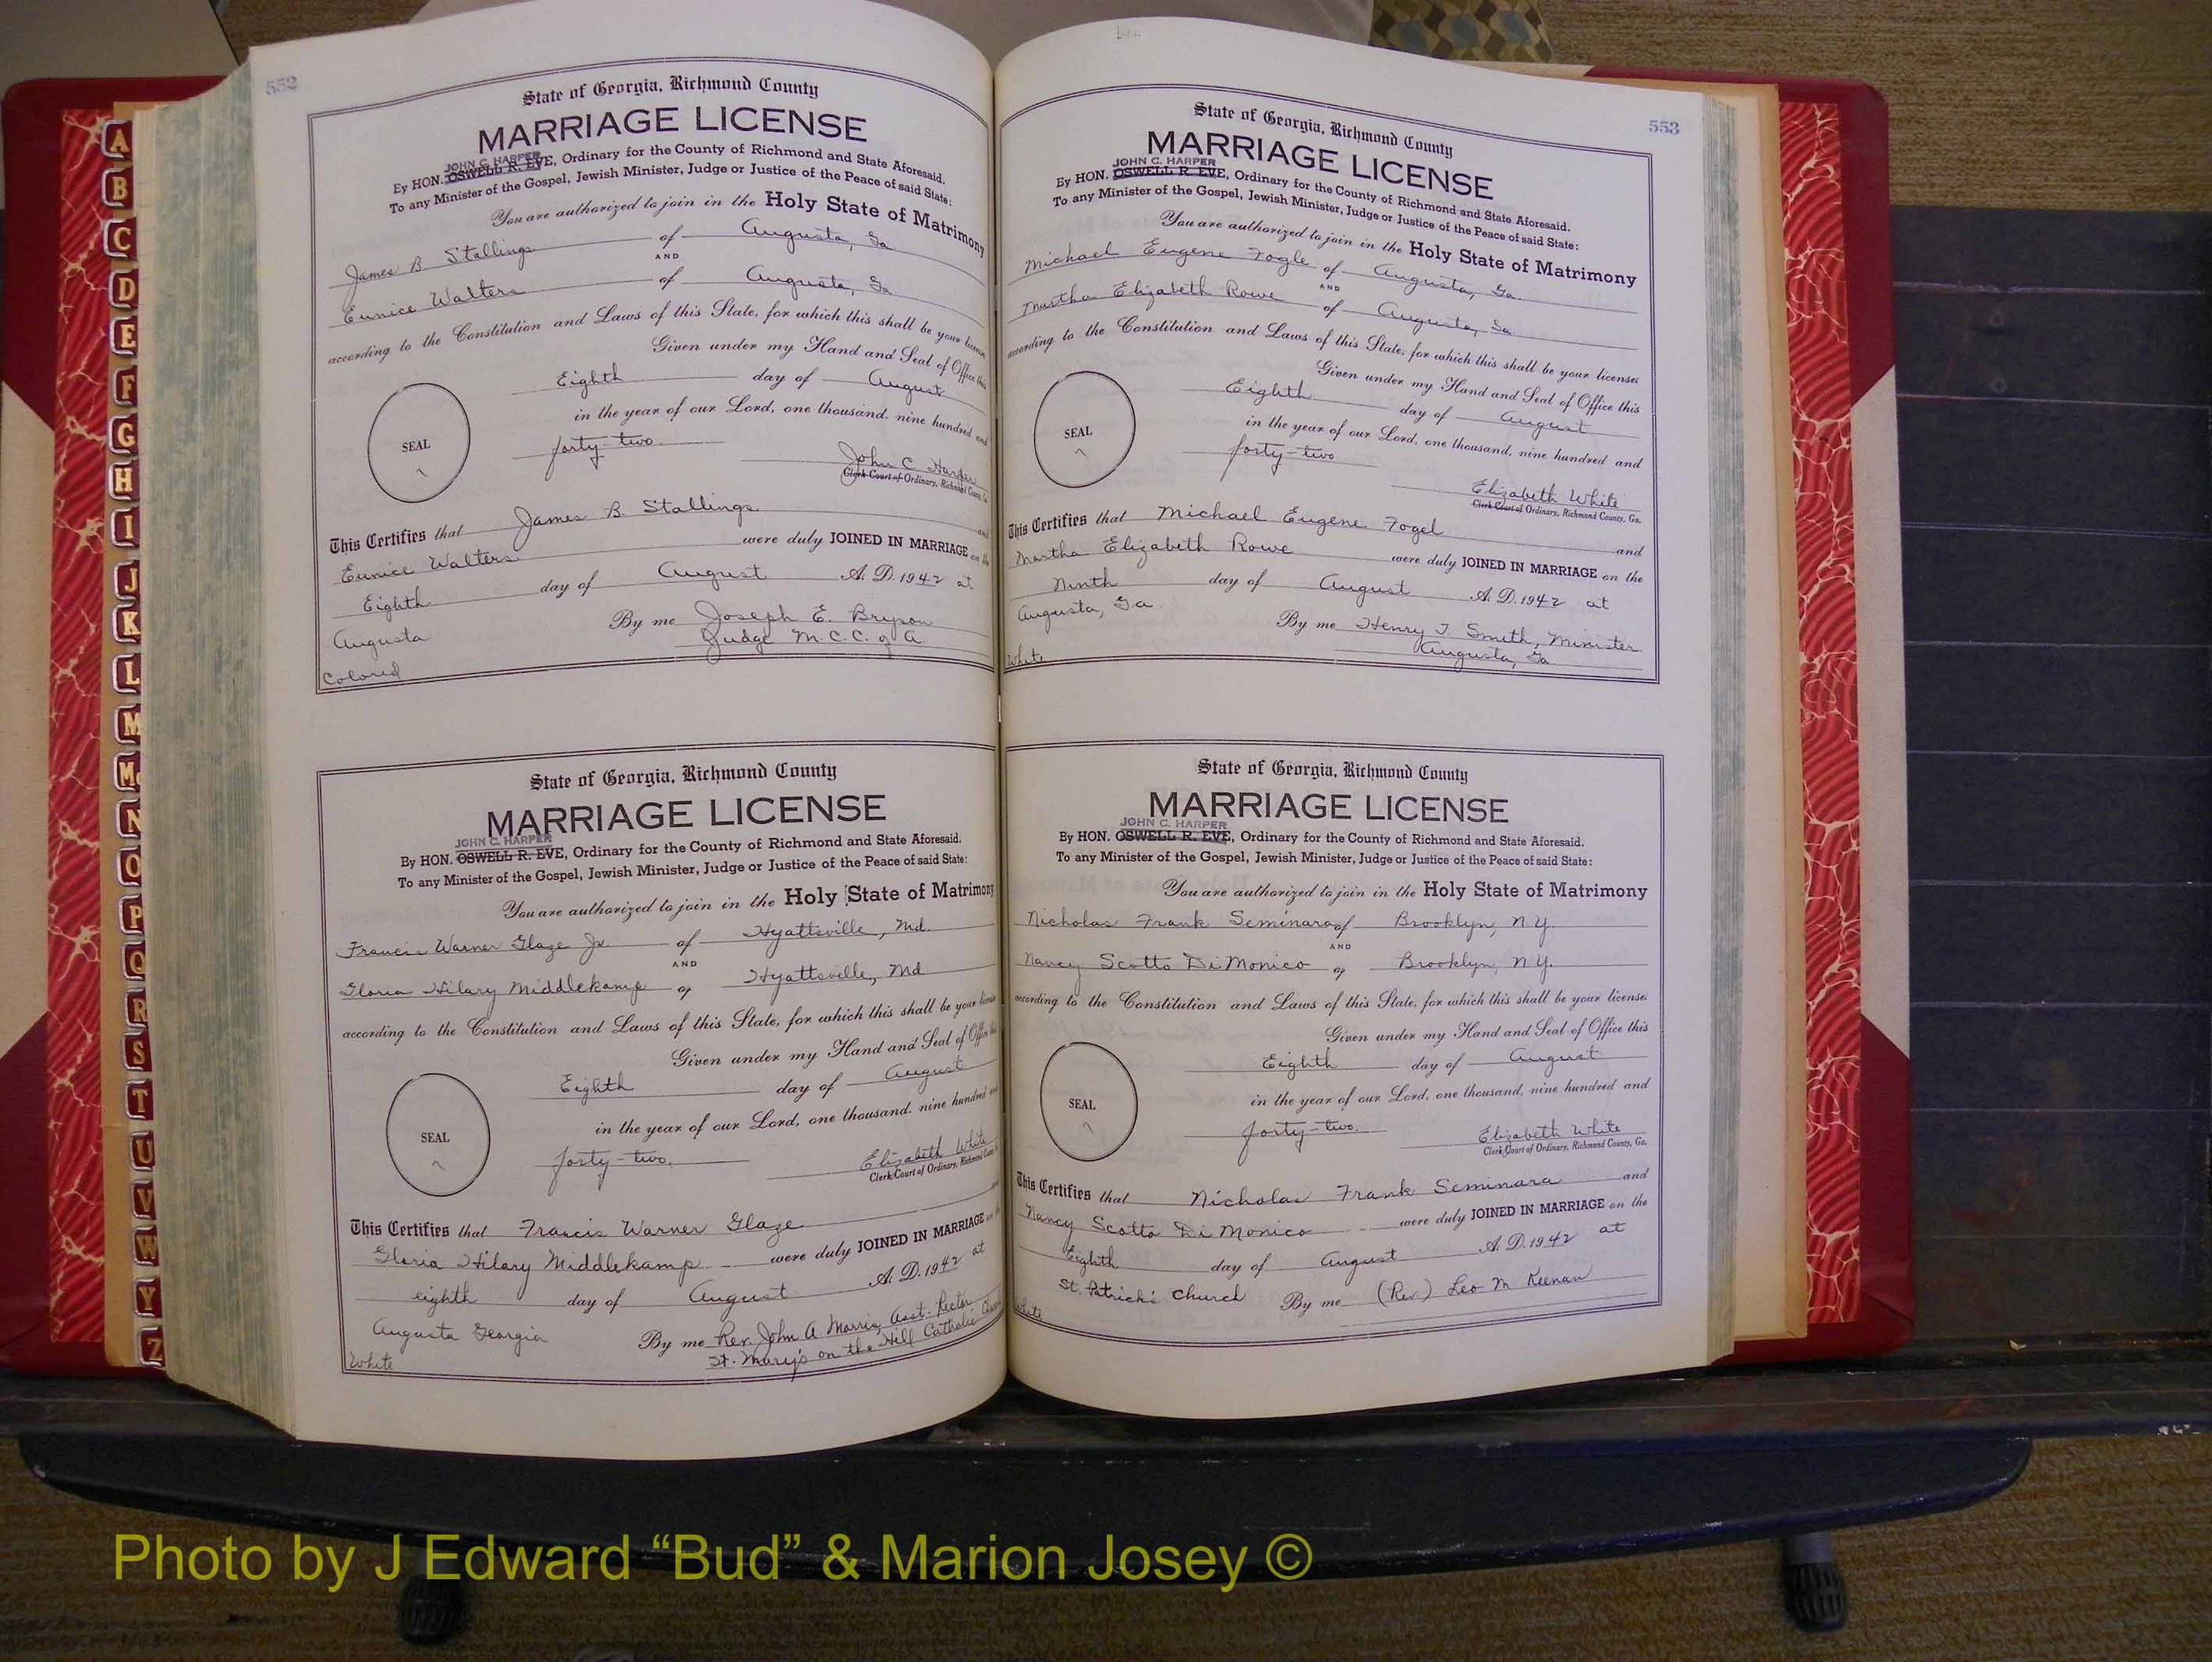 552
State of Georgia, Richmond County
MARRIAGE LICENSE
JOHN C. HARPER
By HON. OSWELL R. EVE, Ordinary for the County of Richmond and State Aforesaid.
To any Minister of the Gospel, Jewish Minister, Judge or Justice of the Peace of said State:
You are authorized to join in the Holy State of Matrimony
James B Stallings of Augusta, Ga
AND
Eunice Walters of Augusta, Ga
according to the Constitution and Laws of this State, for which this shall be your license
Given under my Hand and Seal of Office this
Eighth day of August
in the year of our Lord, one thousand, nine hundred and
SEAL
forty-two
John C. Harper
Clerk Court of Ordinary, Richmond County, Ga.
This Certifies that James B. Stallings and
Eunice Walters were duly JOINED IN MARRIAGE on the
Eighth day of August A. D. 1942 at
Augusta By me Joseph E. Bryson
Judge M.C.C. of A.
Colored
State of Georgia, Richmond County
MARRIAGE LICENSE
JOHN C. HARPER
By HON. OSWELL R. EVE, Ordinary for the County of Richmond and State Aforesaid.
To any Minister of the Gospel, Jewish Minister, Judge or Justice of the Peace of said State:
You are authorized to join in the Holy State of Matrimony
Francis Warner Glaze Jr. of Hyattsville, Md.
AND
Gloria Hilary Middlekamp of Hyattsville, Md
according to the Constitution and Laws of this State, for which this shall be your license
Given under my Hand and Seal of Office this
Eighth day of August
in the year of our Lord, one thousand, nine hundred and
SEAL
forty-two.
Elizabeth White
Clerk Court of Ordinary, Richmond County
This Certifies that Francis Warner Glaze and
Gloria Hilary Middlekamp were duly JOINED IN MARRIAGE on the
eighth day of August A. D. 1942 at
Augusta Georgia By me Rev. John A Morris, Asst. Rector
St. Mary's on the Hill Catholic Church
White
553
State of Georgia, Richmond County
MARRIAGE LICENSE
JOHN C. HARPER
By HON. OSWELL R. EVE, Ordinary for the County of Richmond and State Aforesaid.
To any Minister of the Gospel, Jewish Minister, Judge or Justice of the Peace of said State:
You are authorized to join in the Holy State of Matrimony
Michael Eugene Fogle of Augusta, Ga.
AND
Martha Elizabeth Rowe of Augusta, Ga
according to the Constitution and Laws of this State, for which this shall be your license
Given under my Hand and Seal of Office this
Eighth day of August
in the year of our Lord, one thousand, nine hundred and
SEAL
forty-two
Elizabeth White
Clerk Court of Ordinary, Richmond County, Ga.
This Certifies that Michael Eugene Fogel and
Martha Elizabeth Rowe were duly JOINED IN MARRIAGE on the
Ninth day of August A. D. 1942 at
Augusta, Ga By me Henry J. Smith, Minister
Augusta, Ga
White
State of Georgia, Richmond County
MARRIAGE LICENSE
JOHN C. HARPER
By HON. OSWELL R. EVE, Ordinary for the County of Richmond and State Aforesaid.
To any Minister of the Gospel, Jewish Minister, Judge or Justice of the Peace of said State:
You are authorized to join in the Holy State of Matrimony
Nicholas Frank Seminara of Brooklyn, N.Y.
AND
Nancy Scotto DiMonico of Brooklyn, N.Y.
according to the Constitution and Laws of this State, for which this shall be your license
Given under my Hand and Seal of Office this
Eighth day of August
in the year of our Lord, one thousand, nine hundred and
SEAL
forty-two.
Elizabeth White
Clerk Court of Ordinary, Richmond County, Ga.
This Certifies that Nicholas Frank Seminara and
Nancy Scotto DiMonico were duly JOINED IN MARRIAGE on the
Eighth day of August A. D. 1942 at
St. Patrick's Church By me (Rev.) Leo M Keenan
White
A
B
C
D
E
F
G
H
I
J
K
L
M
Mc
N
O
P
Q
R
S
T
U
V
W
Y
Z
Photo by J Edward “Bud” & Marion Josey ©